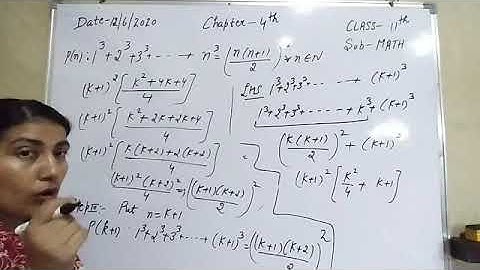 Date-12/6/2020 Chapter-4th CLASS-11th
Sub-MATH
P(n): 1³+2³+3³+ - - - → n³ = (n(n+1)/2)² ∀ n∈N
(k+1)² [k²+4k+4/4]
(k+1)² [k²+2k+2k+4/4]
(k+1)² [k(k+2)+2(k+2)/4]
(k+1)²(k+2)²/4 = ((k+1)(k+2)/2)²
Put n=k+1
P(k+1) 1³+2³+3³+ - - - + (k+1)³ = ((k+1)(k+2)/2)²
LHS 1³+2³+3³+ - - - → (k+1)³
1³+2³+3³+ - - - - + k³+(k+1)³
(k(k+1)/2)² + (k+1)³
(k+1)² [k²/4 + k+1]